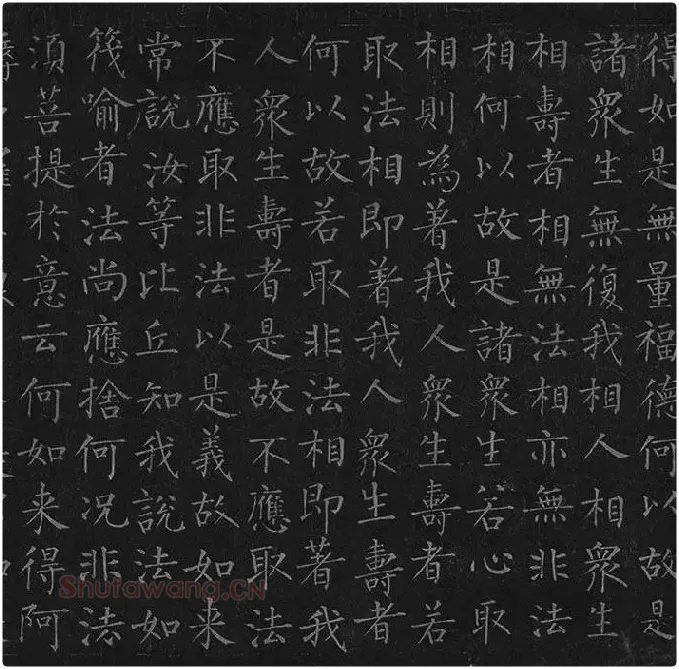 得如是無量福德何以故是
諸衆生無復我相人相衆生
相壽者相無法相亦無非法
相何以故是諸衆生若心取
相則為著我人衆生壽者若
取法相即著我人衆生壽者
何以故若取非法相即著我
人衆生壽者是故不應取法
不應取非法以是義故如来
常說汝等比丘知我說法如
筏喻者法尚應捨何況非法
須菩提於意云何如来得阿
Shufawang.CN